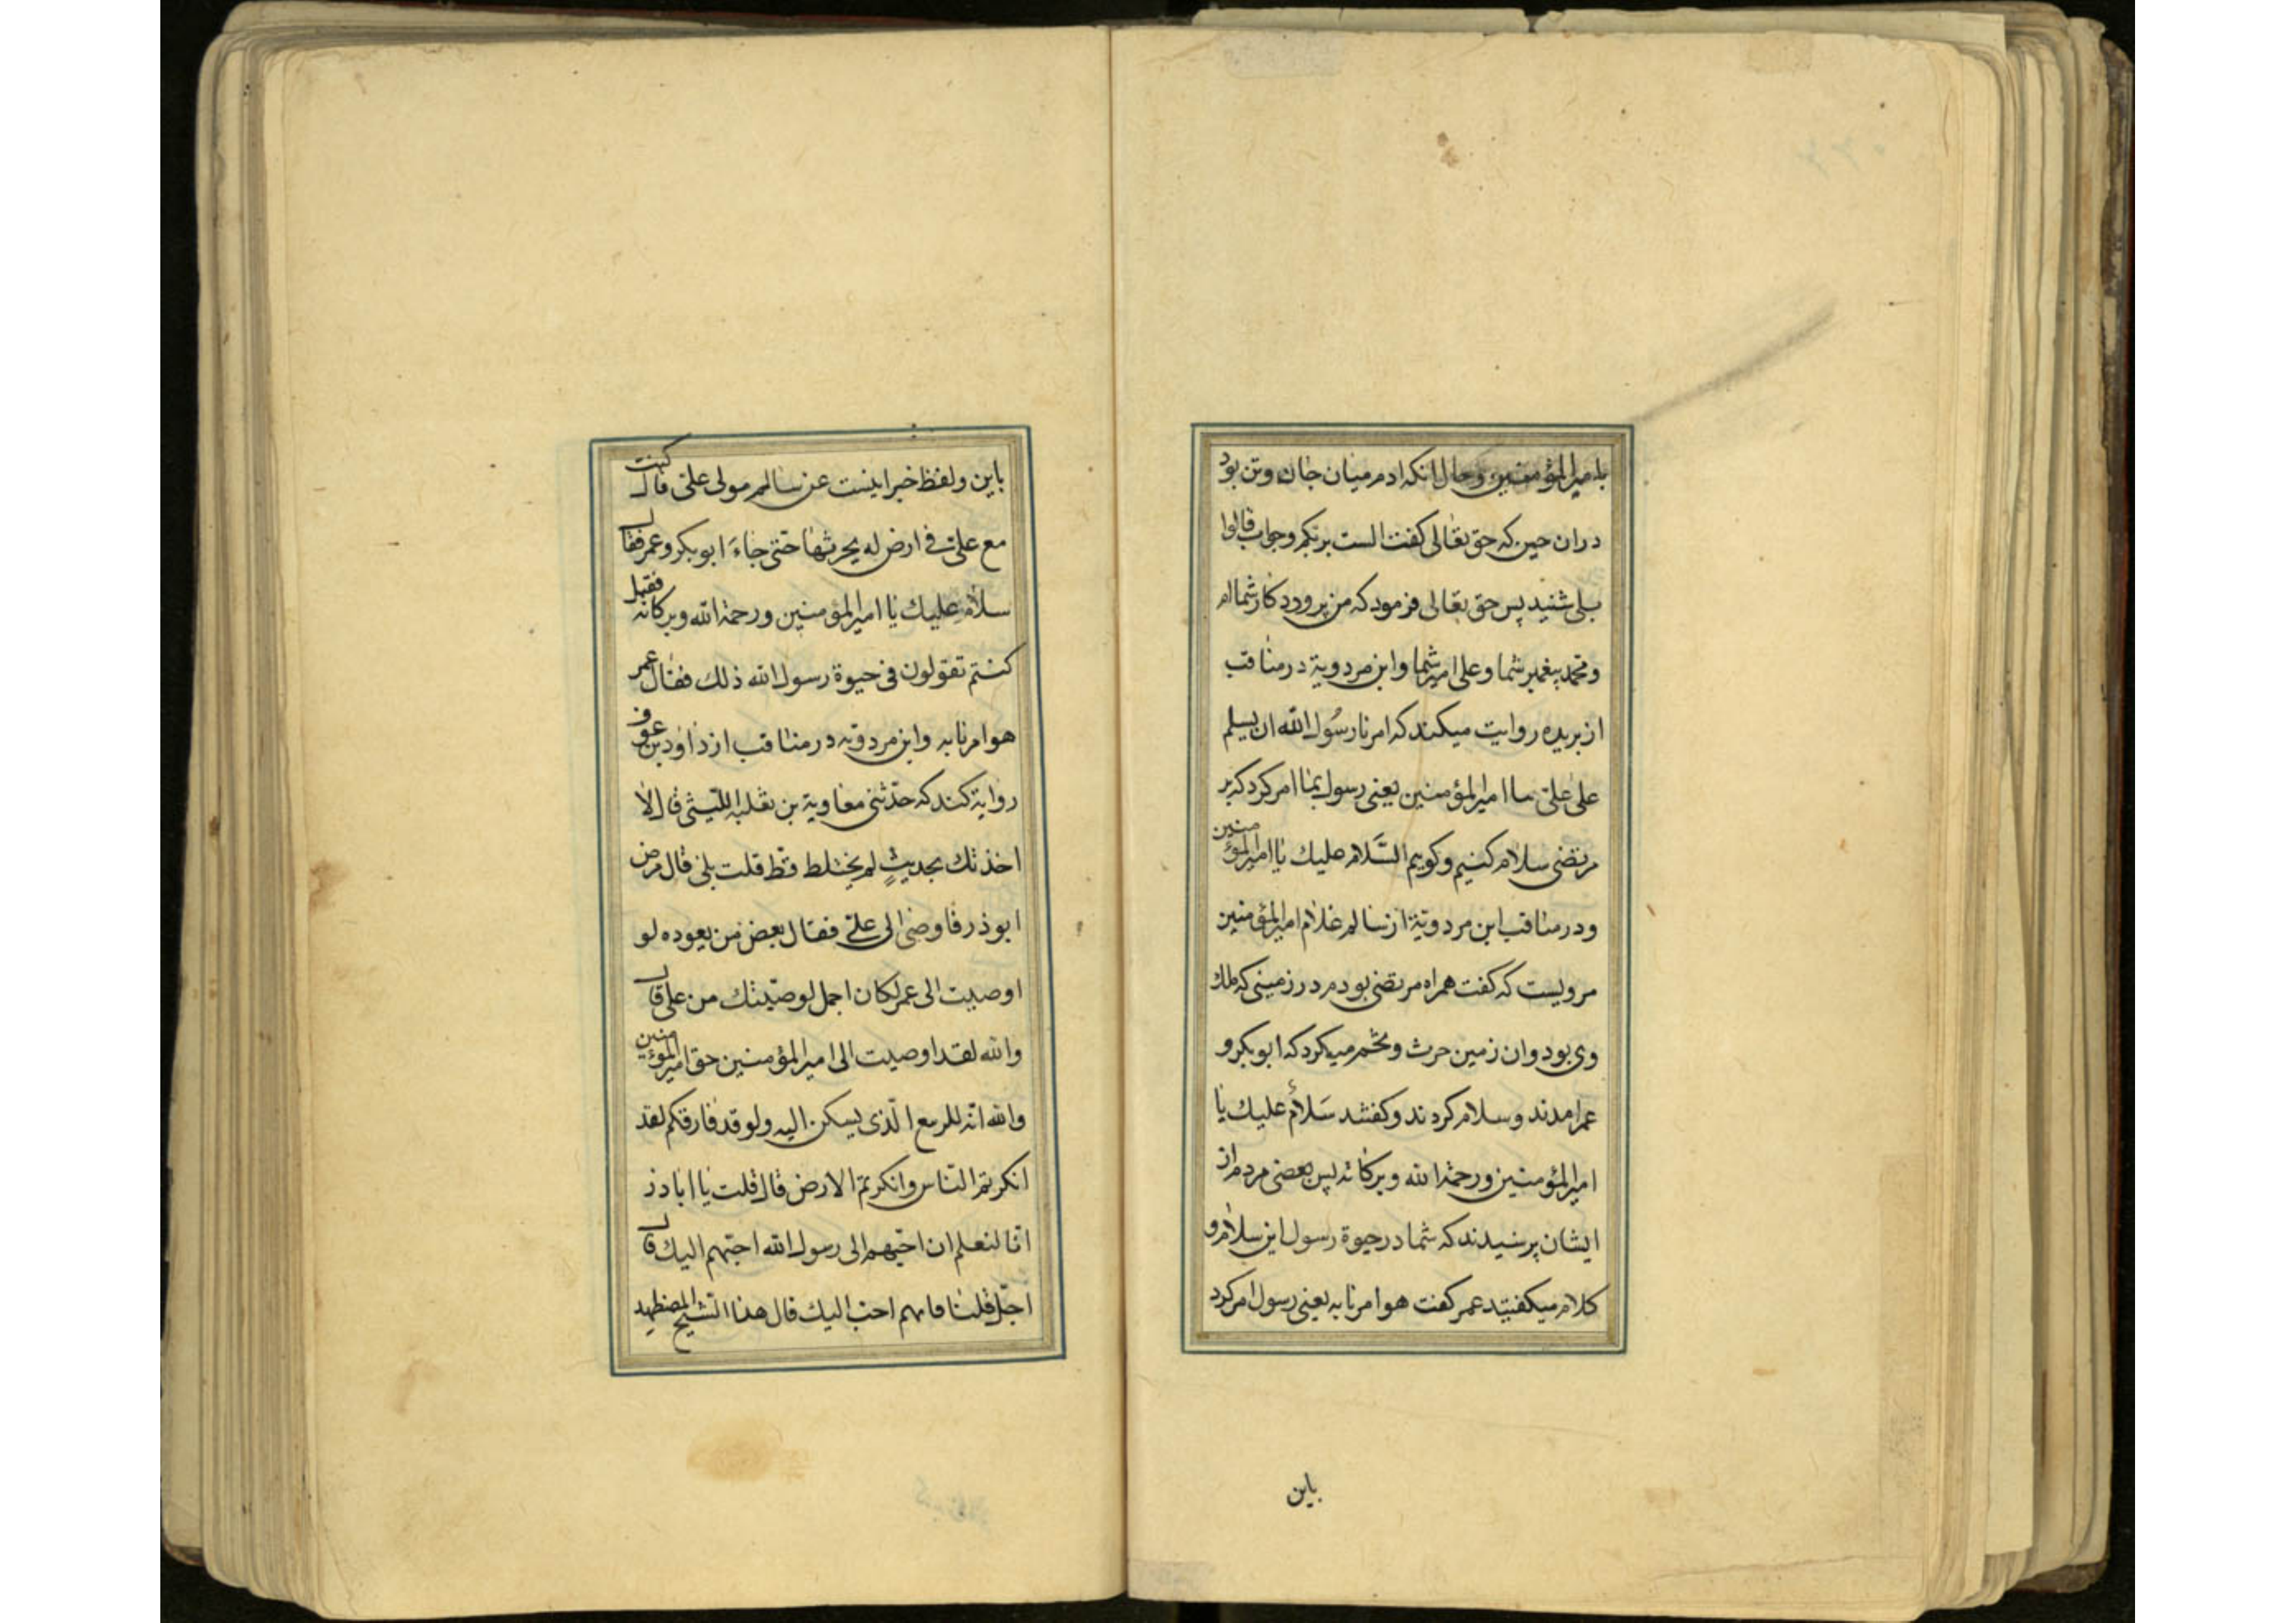 بامیرالمؤمنین وحال انکه ادم میان جان وتن بود
دران حین که حق تعالی کفت الست بربکم وجواب قالوا
بلی شنید پس حق تعالی فرمود که من پروردکار شماام
ومحمد پیغمبر شما وعلی امیر شما وابن مردویة درمناقب
از بریده روایت میکند که امرنا رسُول الله ان یسلم
علی علیّ یا امیرالمؤمنین یعنی رسول بما امر کرد که بر
مرتضی سلام کنیم وکوییم السَّلام علیك یا امیرالمؤمنین
ودرمناقب ابن مردویّة از سالم غلام امیرالمؤمنین
مرویست که کفت همراه مرتضی بودم در زمینی که ملك
وی بود وان زمین حرث وتخم میکرد که ابوبکر و
عمر امدند وسلام کردند وکفتند سَلامٌ علیك یا
امیرالمؤمنین ورحمة الله وبرکاته پس بعضی مردم از
ایشان پرسیدند که شما در حیوة رسول این سلام و
کلام میکفتید عمر کفت هو امرنا به یعنی رسول امر کرد
باین
باین ولفظ خبر اینست عن سالم مولی علیّ قال کنت
مع علیّ فی ارض له یحرثها حتّی جاءَ ابوبکر وعمر فقال
سلام علیك یا امیرالمؤمنین ورحمة الله وبرکاته فقیل
کنتم تقولون فی حیوة رسول الله ذلك فقال عمر
هو امرنا به وابن مردویه درمناقب از داود بن عوف
روایة کند که حدّثنی معاویة بن ثعلبه اللّیثی قال الا
احدثك بحدیثٍ لم یختلط قطّ قلت بلی قال مرض
ابوذر فاوصی الی علیّ فقال بعض من یعوده لو
اوصیت الی عمر لکان اجمل لوصیّتك من علی قال
والله لقد اوصیت الی امیرالمؤمنین حق امیرالمؤمنین
والله انّه للربیع الّذی یسکن الیه ولو قد فارقکم لقد
انکرتم النّاس وانکرتم الارض قال قلت یا اباذر
انّا لنعلم ان احبّهم الی رسول الله احبّهم الیك قال
اجل قلنا فایهم احبّ الیك قال هذا الشّیخ المضطهد